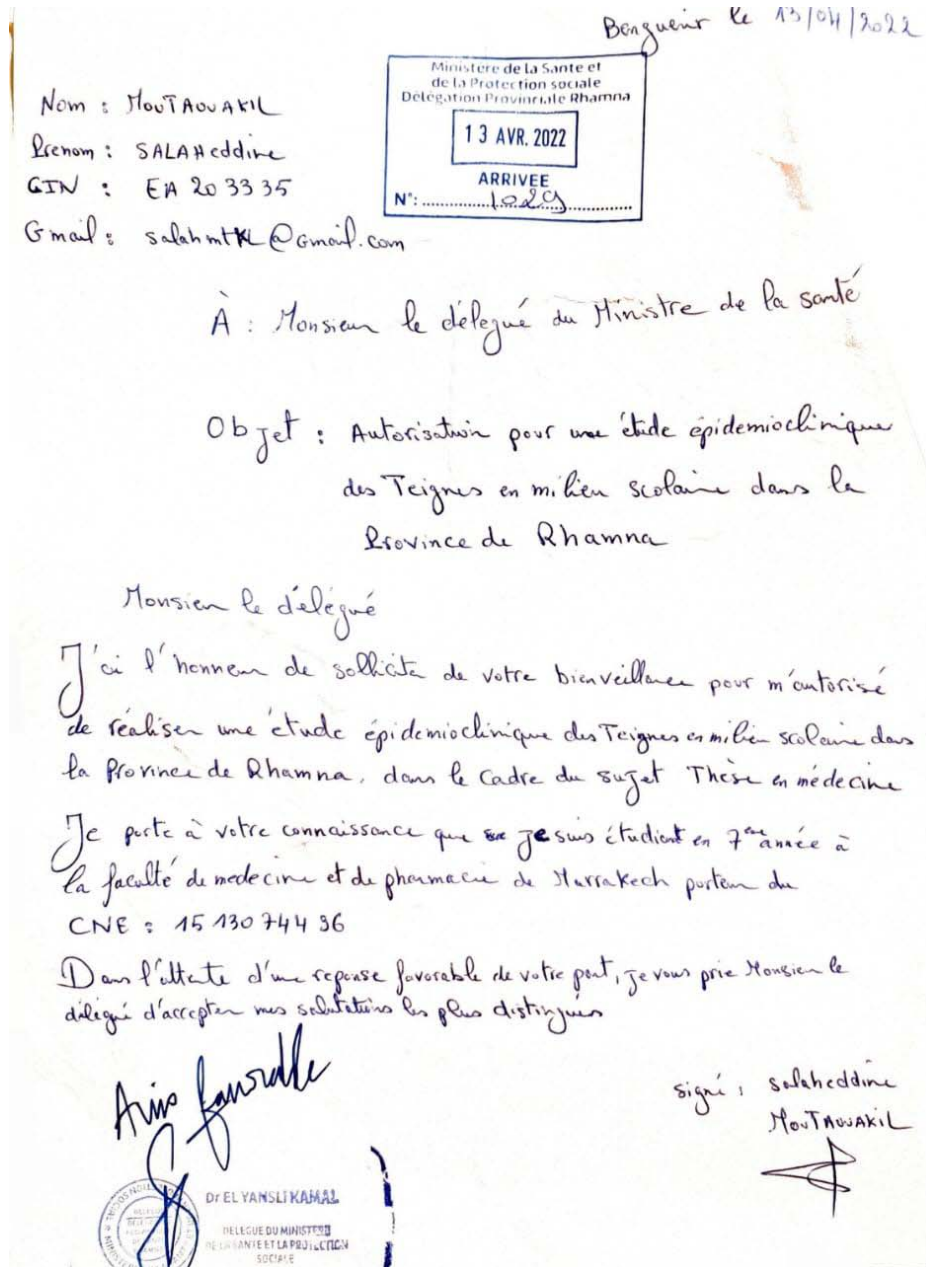 Benguerir le 13/04/2022
Ministère de la Santé et
de la Protection sociale
Délégation Provinciale Rhamna
13 AVR. 2022
ARRIVEE
N°: 1029
Nom : MOUTAOUAKIL
Prenom : SALAHeddine
CIN : EA 20 33 35
Gmail : salahmtKL@Gmail.com
À : Monsieur le délégué du Ministre de la santé
Objet : Autorisation pour une étude épidemioclinique
des Teignes en milieu scolaire dans la
Province de Rhamna
Monsieur le délégué
J'ai l'honneur de solliciter de votre bienveillance pour m'autorisé
de réaliser une étude épidemioclinique des Teignes en milieu scolaire dans
la Province de Rhamna, dans le Cadre du sujet Thèse en médecine
Je porte à votre connaissance que je suis étudiant en 7ème année à
la faculté de medecine et de pharmacie de Marrakech porteur du
CNE : 15 130 744 96
Dans l'attente d'une reponse favorable de votre part, je vous prie Monsieur le
délégué d'accepter mes salutations les plus distingués
Avis favorable
signé : Salaheddine
MOUTAOUAKIL
Dr EL YANSLI KAMAL
DELEGUE DU MINISTERE
DE LA SANTE ET LA PROTECTION
SOCIALE